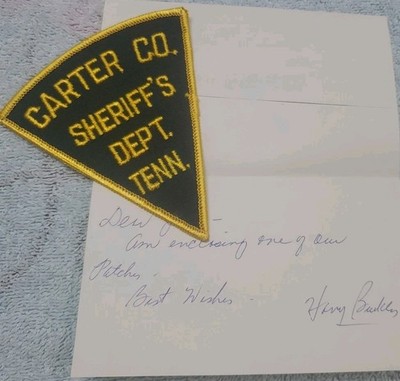 CARTER CO.
SHERIFF'S
DEPT.
TENN.
Am enclosing one of our
Patches.
Best Wishes -